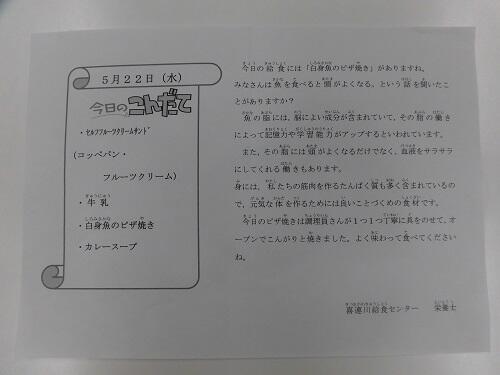 5月22日（水）
今日のこんだて
・セルフフルーツクリームサンド
（コッペパン・
フルーツクリーム）
・牛乳
・白身魚のピザ焼き
・カレースープ
今日の給食には「白身魚のピザ焼き」がありますね。
みなさんは魚を食べると頭がよくなる、という話を聞いたこ
とがありますか？
魚の脂には、脳によい成分が含まれていて、その脂の働き
によって記憶力や学習能力がアップするといわれています。
また、その脂には頭がよくなるだけでなく、血液をサラサラ
にしてくれる働きもあります。
身には、私たちの筋肉を作るたんぱく質も多く含まれているの
で、元気な体を作るためには良いことづくめの食材です。
今日のピザ焼きは調理員さんが１つ１つ丁寧に具をのせて、オ
ーブンでこんがりと焼きました。よく味わって食べてください
ね。
喜連川給食センター　栄養士